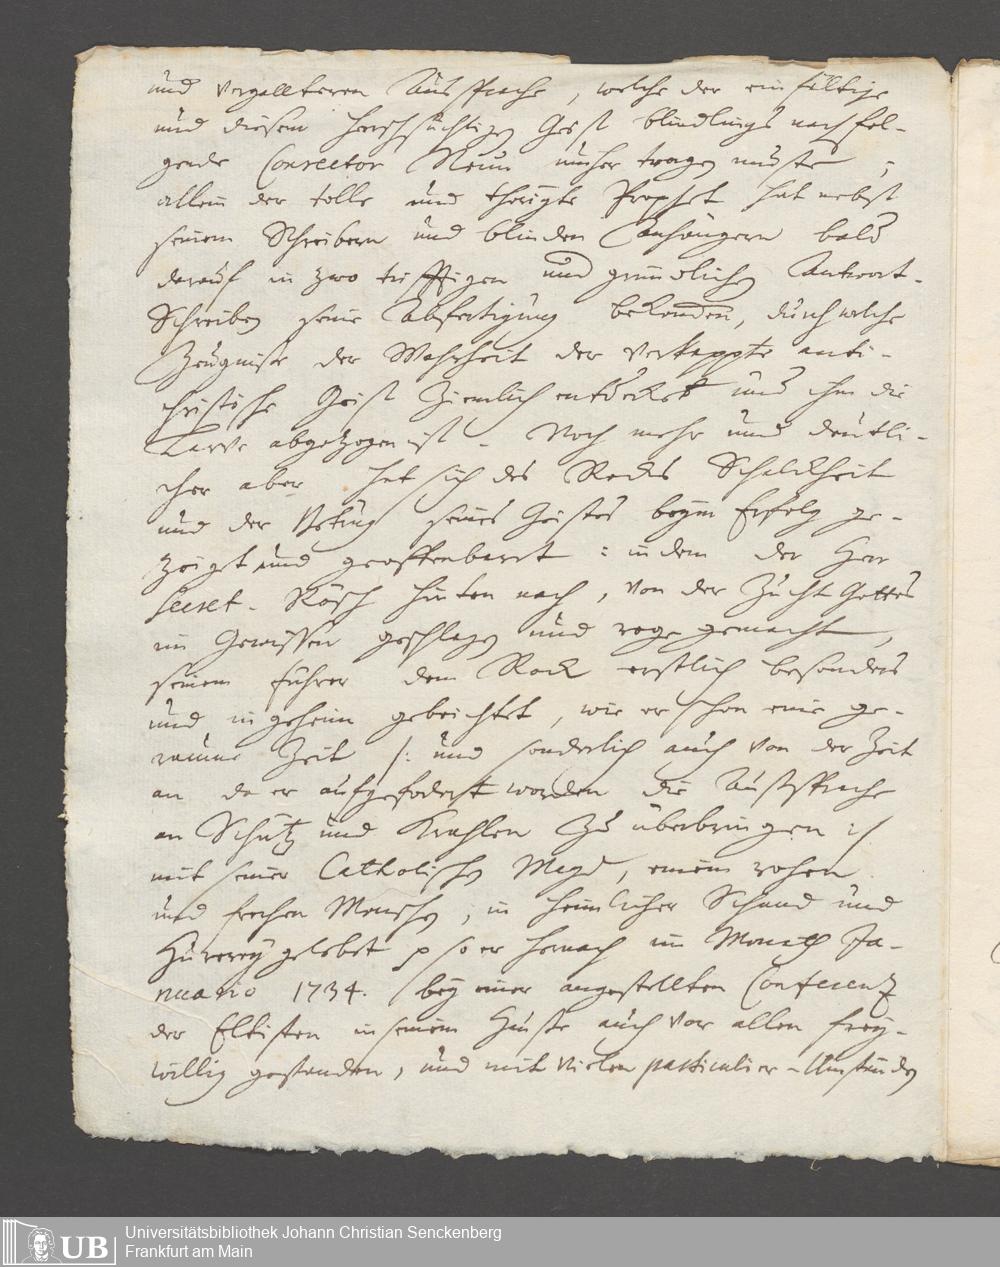 und vergallteren Aus Sprache, welche der einfältige
und diesem herrschsüchtigen Geist blindlings nachfol-
gende Conrector Neun umher tragen muste;
allein der tolle und thörigte Prophet hat nebst
seinem Schreibern und blinden Anhängern bald
darauf in zwo triftigen und gründlichen Antwort-
Schreiben seine Abfertigung bekommen, durch welche
Zeugniße der Wahrheit der verkappte anti-
christische Geist ziemlich entdecket und ihm die
Larve abgezogen ist. Noch mehr und deutli-
cher aber hat sich des Rocks Schalckheit
und der Betrug seines Geistes beym Erfolg ge-
zeiget und geoffenbaret: indem der Herr
Secret. Rösch hinten nach, von der Zucht Gottes
im Gewissen geschlagen und rege gemacht,
seinem Führer dem Rock erstlich besonders
und in geheim gebeichtet, wie er schon eine ge-
raume Zeit /: und sonderlich auch von der Zeit
an da er aufgefodert worden die Aussprache
an Schütz und Krahlen zu überbringen :/
mit seiner Catholischen Magd, einem rohen
und frechen Menschen, in heimlicher Schand und
Hurerey gelebet p so er hernach im Monath Ja-
nuario 1734. bey einer angestellten Conferenz
der Eltisten in seinem Hause auch vor allen frey-
willig gestanden, und mit vielen particulier-Umständen
Universitätsbibliothek Johann Christian Senckenberg
Frankfurt am Main
UB